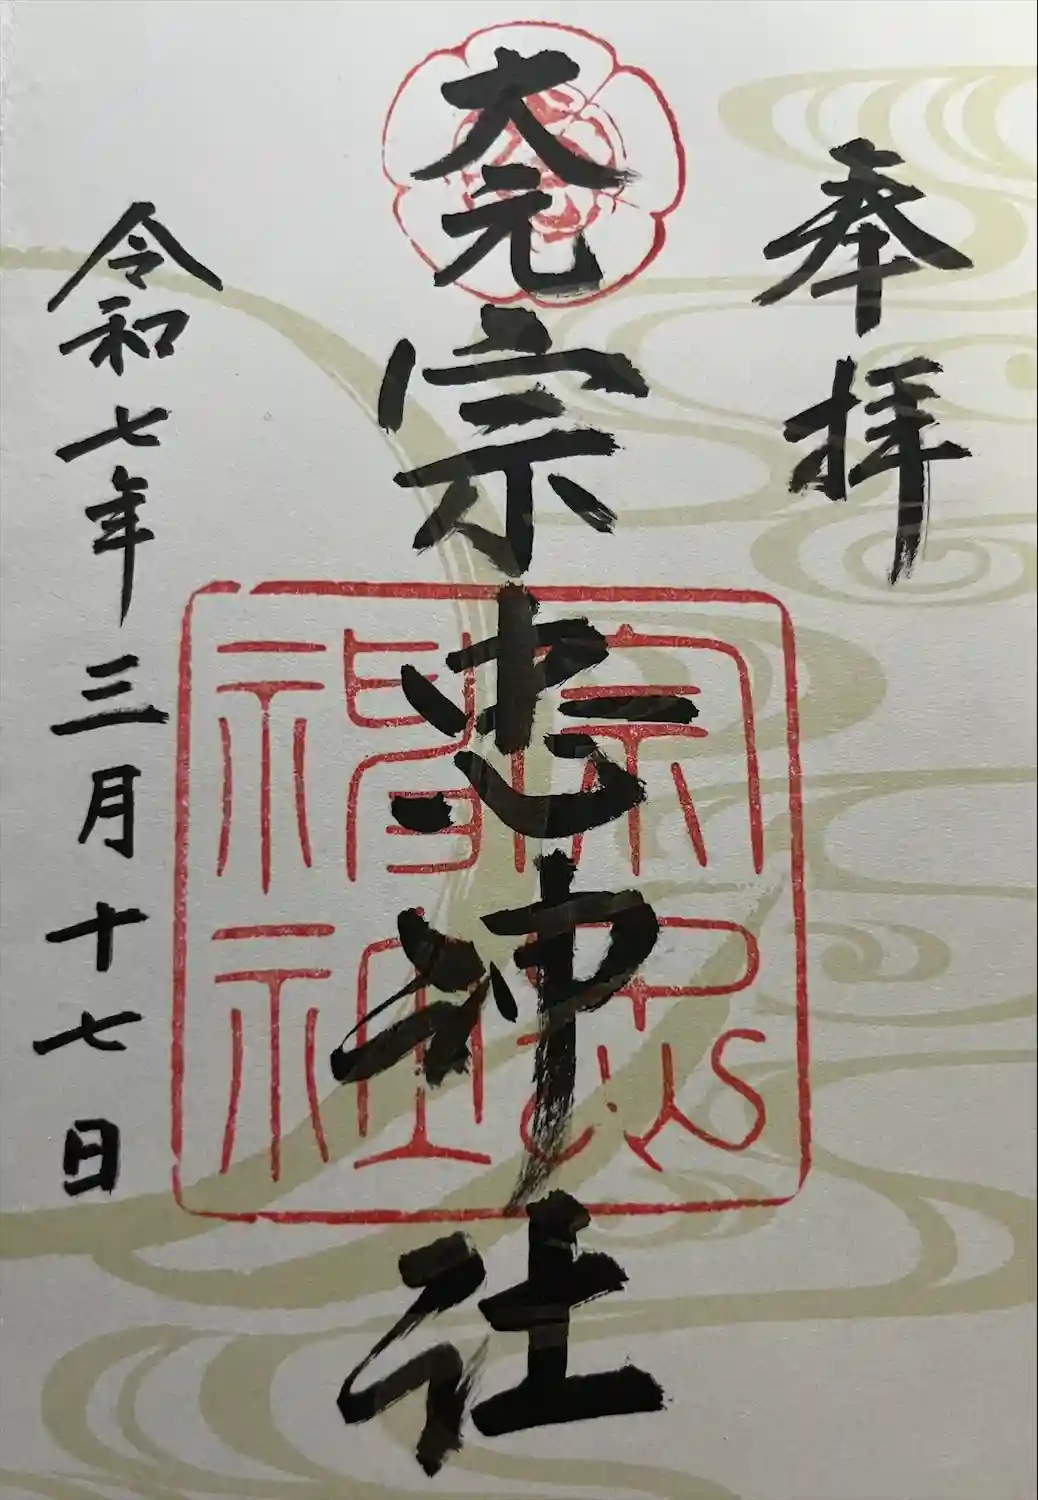 奉拝
大元宗忠神社
宗忠神社
令和七年三月十七日